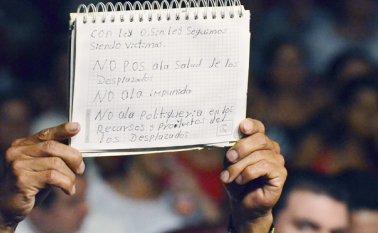 con ley o sin ley seguimos
siendo victimas.
NO POS a la Salud de los
Desplazados
NO a la impunida
NO a la Politiqueria en los
Recursos y Productos del
los Desplazados